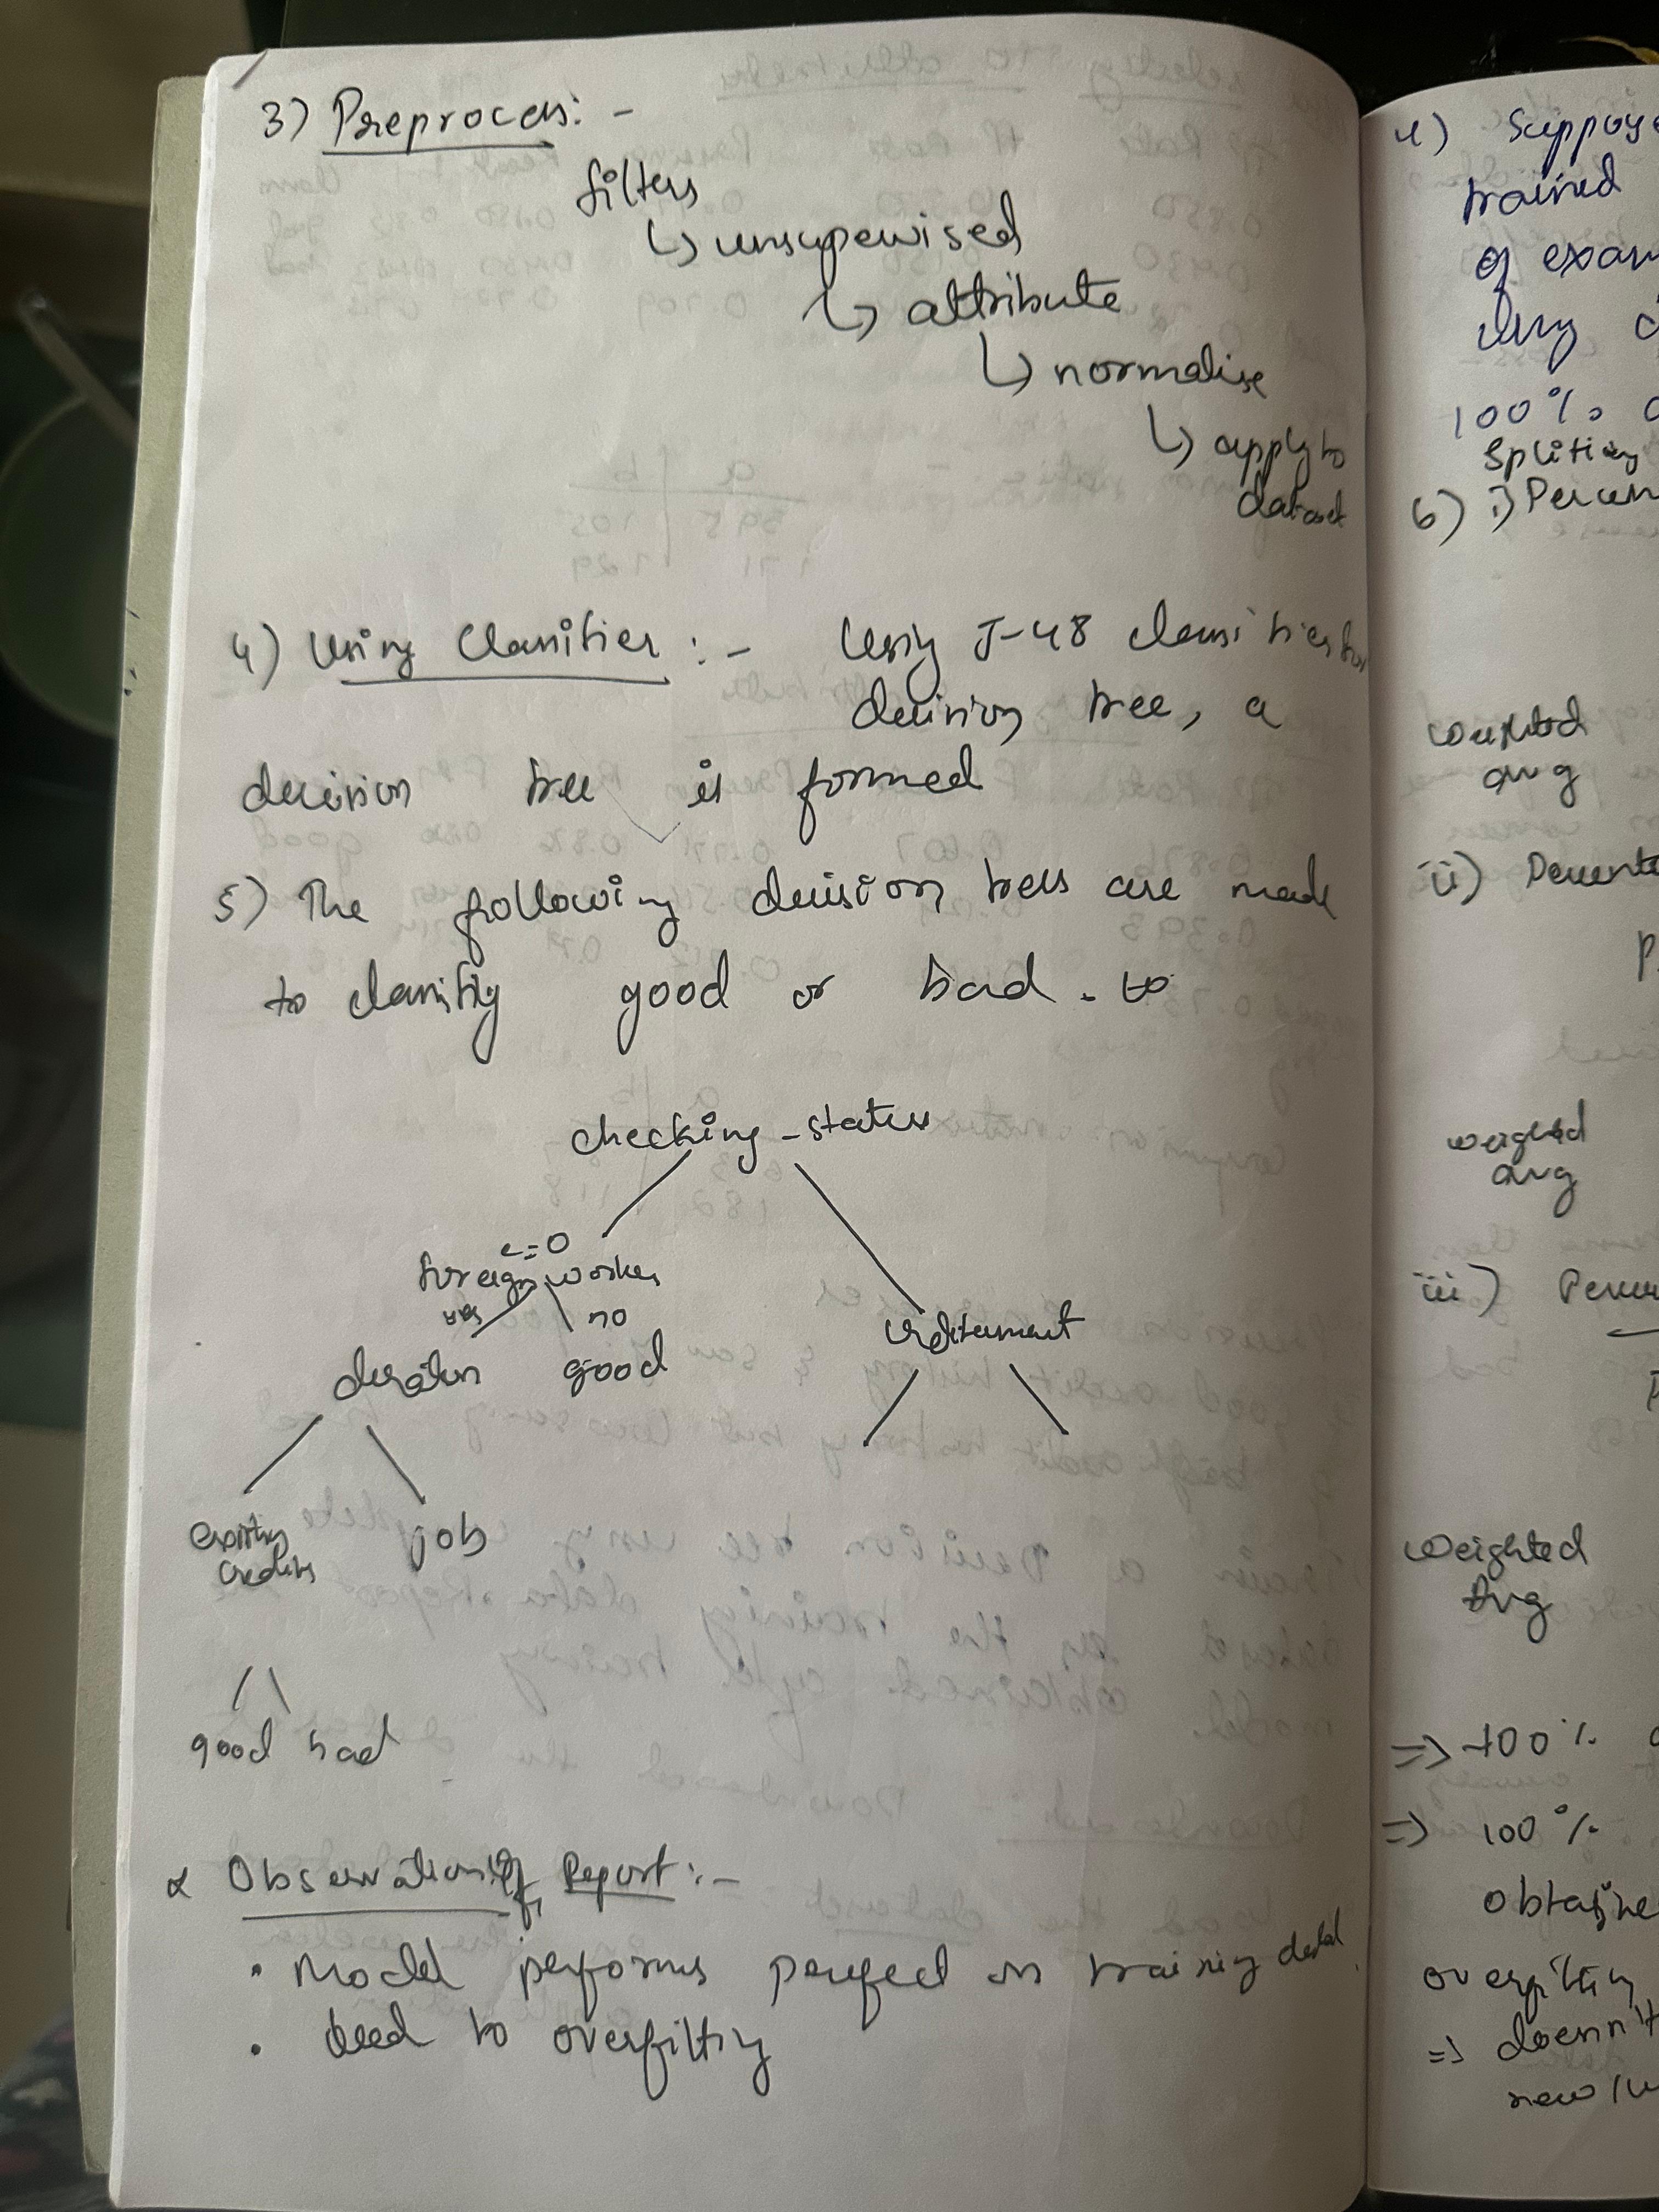 3) Preprocess: -
filters
↳ unsupervised
↳ attribute
↳ normalise
↳ apply to
dataset
4) Using Classifier :- Using J-48 classifier for
decision tree, a
decision tree is formed
5) The following decision trees are made
to classify good or bad. to
checking_status
<=0
foreign worker
yes no
duration good
creditamount
existing
credits
job
good bad
Observation of Report :-
• Model performs perfect on training data
• lead to overfitting
4) Suppose
trained
of exam
100%
Spliting
6) i) Percen
weighted
avg
ii) Percenta
weighted
avg
iii) Percen
Weighted
Avg
=> 100 %
=> 100 %
obtaine
overfitting
=> doesn't
new